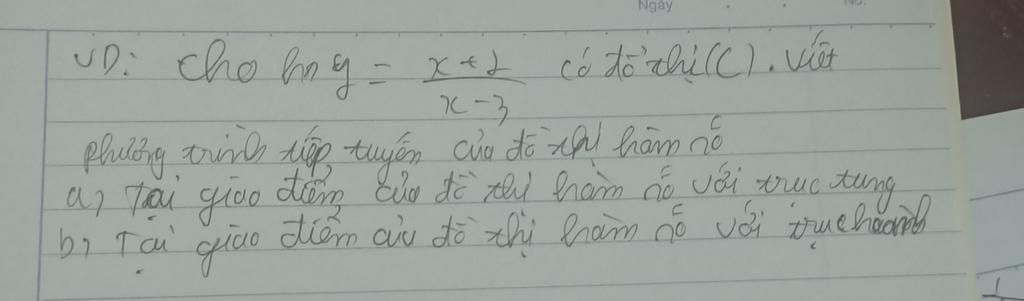 Ngày No.
VD: Cho hs y = x + 2 / x - 3 có đồ thị (C). Viết
phương trình tiếp tuyến của đồ thị hàm số
a) Tại giao điểm của đồ thị hàm số với trục tung
b) Tại giao điểm của đồ thị hàm số với trục hoành